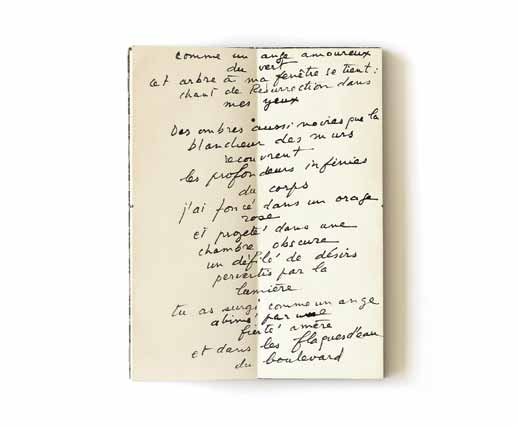 comme un ange amoureux
du vert
cet arbre à ma fenêtre se tient :
chant de Résurrection dans
mes yeux
Des ombres aussi noires que la
blancheur des murs
recouvrent
les profondeurs infinies
du corps
j'ai foncé dans un orage
rose
et projeté dans une
chambre obscure
un défilé de désirs
pervertis par la
lumière
tu as surgi comme un ange
abîmé par une
fierté amère
et dans les flaques d'eau
du boulevard